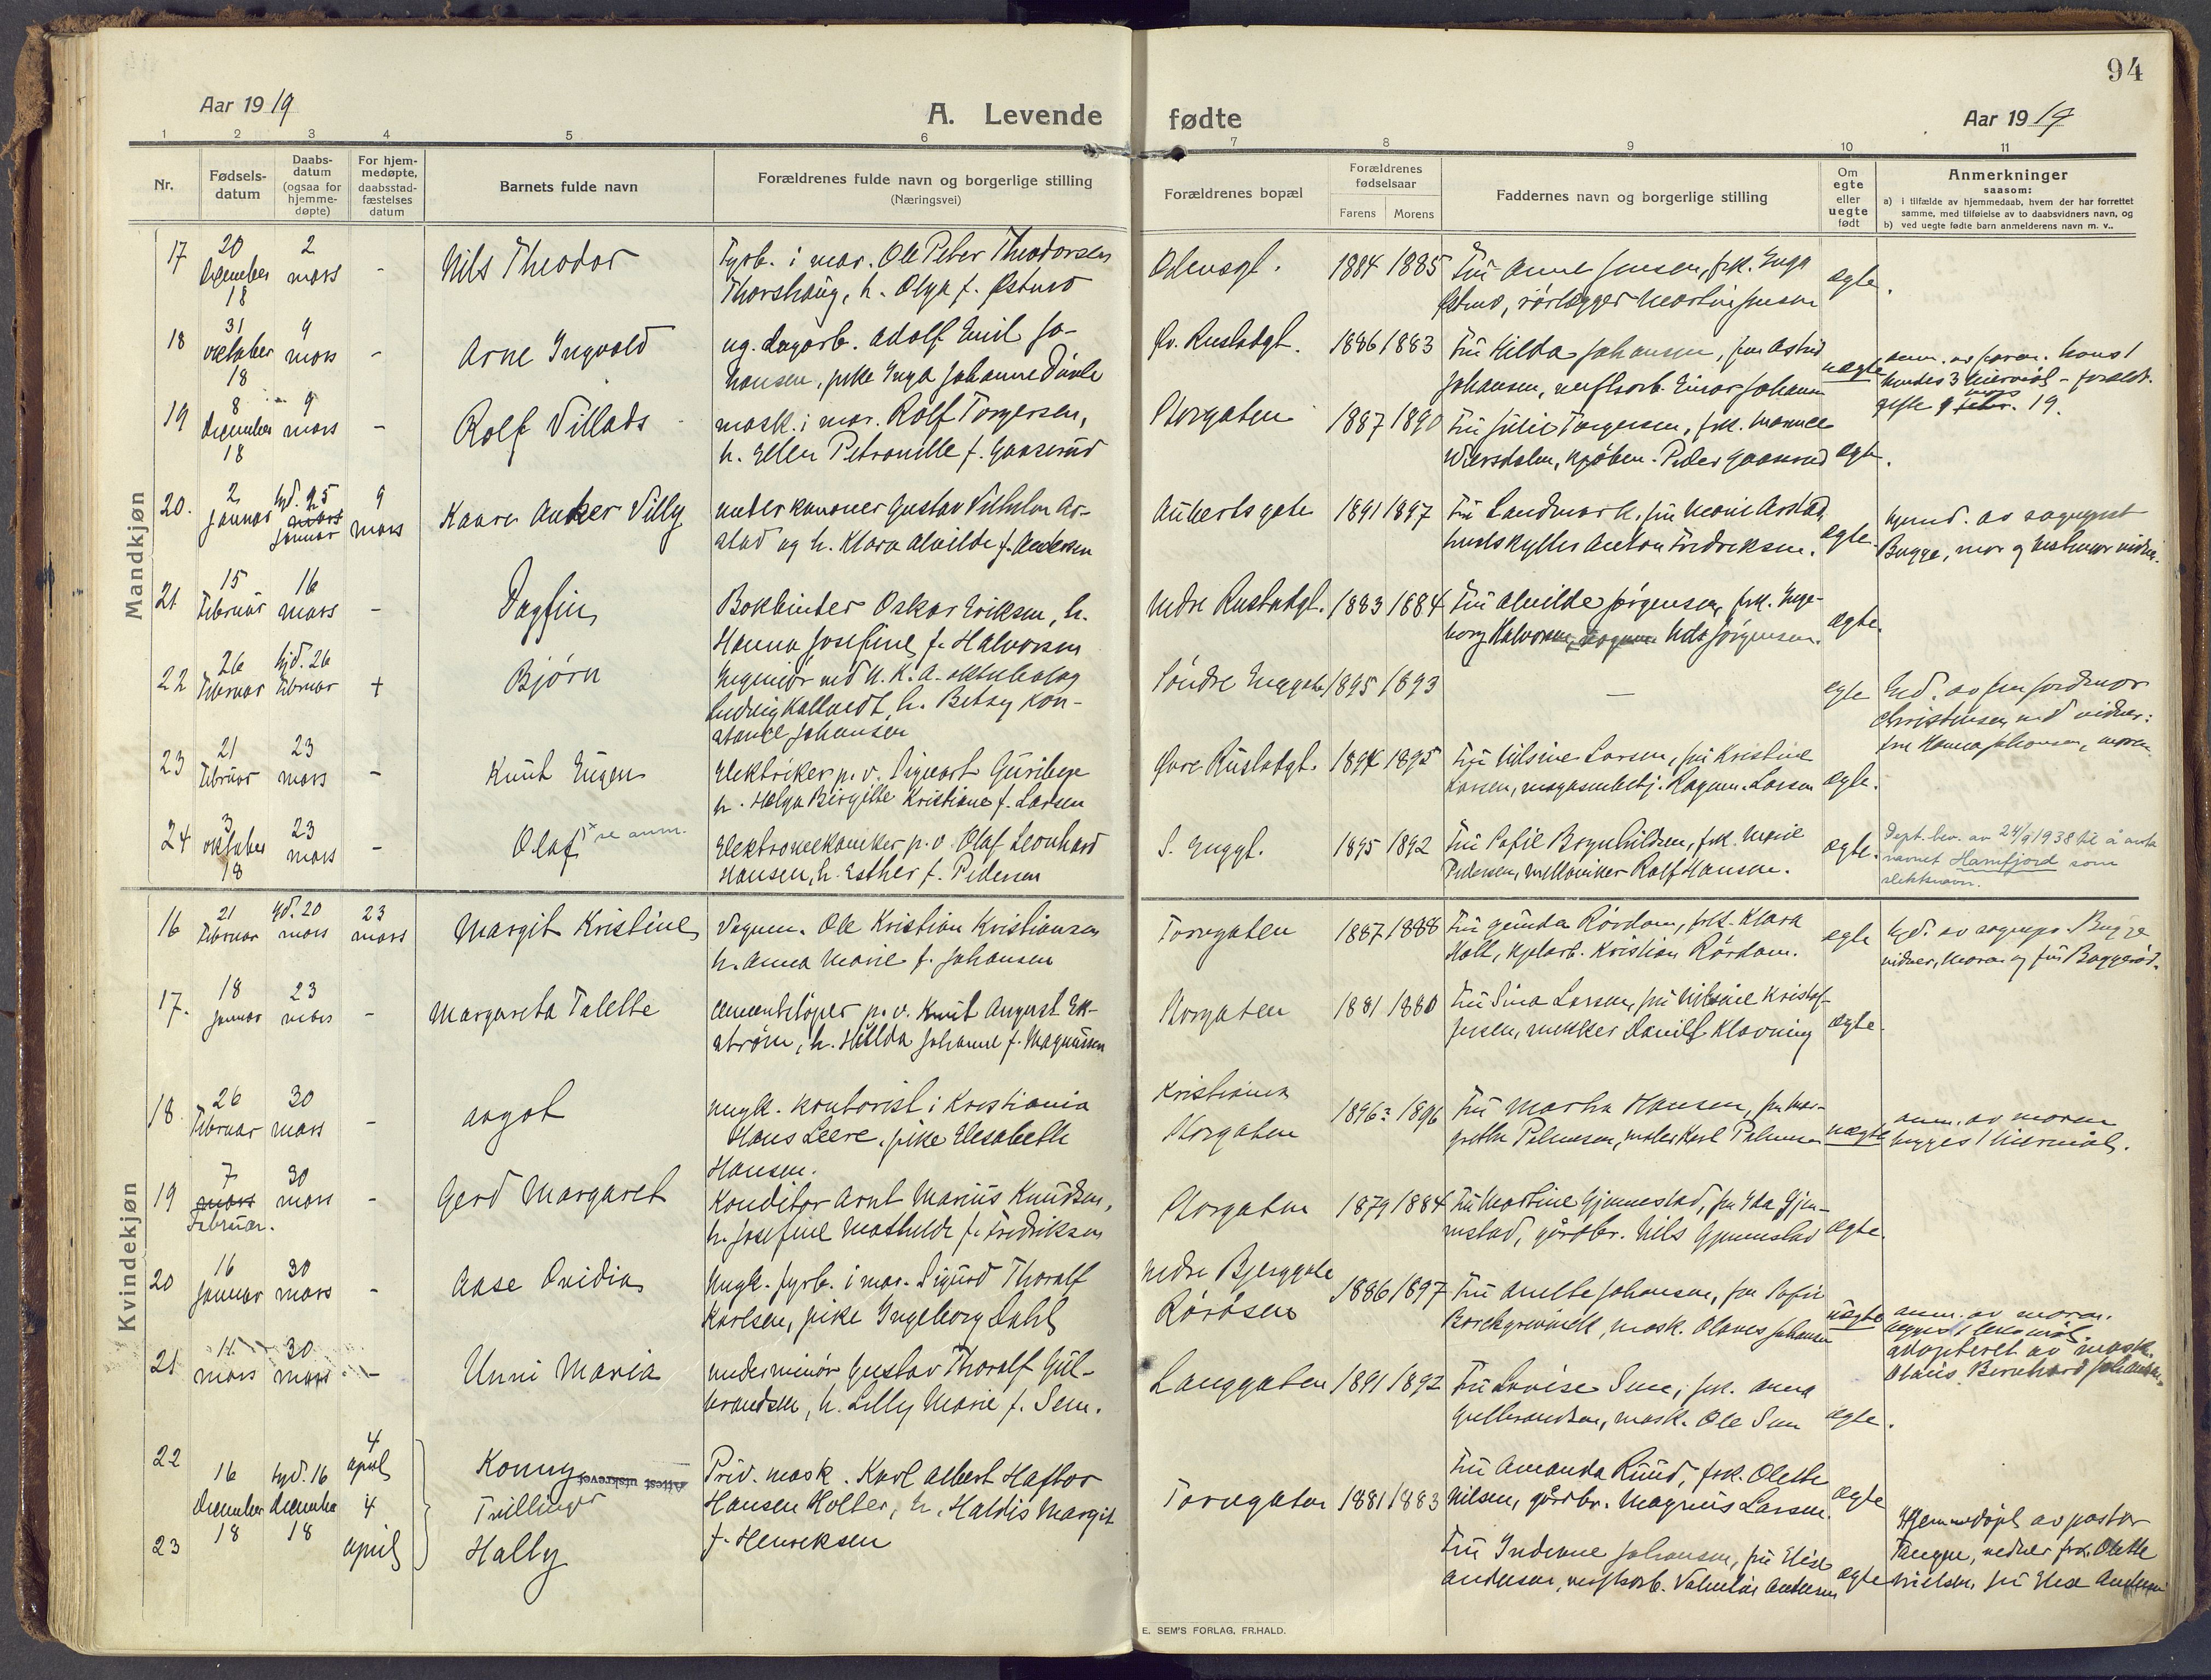 94
Aar 1919
A. Levende fødte
Aar 1919
1 2 3 4 5 6 7 8 9 10 11
Nr.
Fødsels-
datum
Daabs-
datum
(ogsaa for
hjemme-
døpte)
For hjem-
medøpte,
daabsstad-
fæstelses
datum
Barnets fulde navn
Forældrenes fulde navn og borgerlige stilling
(Næringsvei)
Forældrenes bopæl
Forældrenes
fødselsaar
Farens Morens
Faddernes navn og borgerlige stilling
Om
egte
eller
uegte
født
Anmerkninger
saasom:
a) i tilfælde av hjemmedaab, hvem der har forrettet
samme, med tilføielse av to daabsvidners navn, og
b) ved uegte fødte barn anmelderens navn m. v..
Mandkjøn
17 20 December 18 2 mars - Nils Theodor
Fyrb. i mar. Ole Peter Theodorsen
Thorshaug, h. Olga f. Østmo
1884 1885 Fru Anne Jensen, frk. Inga
Østmo, rørlægger Martin Jensen
egte.
18 31 oktober 18 9 mars - Arne Ingvald
ug. dagarb. Adolf Emil Jo-
hansen, pike Inga Johanne
Øv. Rustadgt. 1886 1883 Fru Hilda Johansen, fru Astrid
Johansen, verftsarb. Einar Johansen
uegte
anm. av faren. hans 1
hendes 3 leiermål - foreldr.
gifte 9 mars 19.
19 8 December 18 9 mars - Rolf Villads
mask. i mar. Rolf Torgersen,
h. Ellen Petronelle f. Gaaserud
Storgaten 1887 1890 Fru Julie Torgersen, frk.
kjøbm. Peder Gaaserud
egte.
20. 2 Januar hjd. 25 mars Januar 9 mars Kaare Anker Villy
underkanoner Gustav Vilhelm Ar-
stad og h. Klara Alvilde f. Andersen
Auberts gate 1891 1897 Fru Landmark, fru Marie Arstad,
Anton Fredriksen.
egte.
hjemd. av sogneprest
Bugge, mor og
21 15 Februar 16 mars - Dagfin
Bokbinder Oskar Eriksen, h.
Hanna Josefine f. Halvorsen
Nedre Rustadgt. 1883 1884 Fru Alvilde Jørgensen, frk. Inge-
borg Halvorsen, Nils Jørgensen.
egte.
22 26 Februar hjd. 26 Februar + Bjørn
Ingeniør ved N. K. A.
Ludvig h. Betsy Kon-
stance Johansen
Søndre Enggate 1895 1893 —
egte
Hjd. av fru jordmor
Christensen med vidner:
fru Hanna Johansen, moren
23 21 Februar 23 mars - Knut Eugen
Elektriker p. v. Sigvart
h. Helga Birgitte Kristiane f. Larsen
Øvre Rustadgt. 1894 1895 Fru Nilsine Larsen, fru Kristine
Larsen, magasinbetj. Ragnv. Larsen
egte.
24 3 oktober 18 23 mars - Olaf x se anm.
Elektromekaniker p. v. Olaf Leonhard
Hansen, h. Esther f. Pedersen
S. Enggt. 1895 1892 Fru Sofie Brynhildsen, frk. Marie
Pedersen, mekaniker Rolf Hansen.
egte.
Dept. bev. av 24/9 1938 til å anta
navnet Hamfjord som
slektsnavn.
Kvindekjøn
16 21 Februar hjd. 20 mars 23 mars Margit Kristine
Vognm. Ole Kristian Kristiansen
h. Anna Marie f. Johansen
Torvgaten 1887 1888 Fru Gunda Rørdam, frk. Klara
Holt, Kristian Rørdam.
egte
hjd. av sognepr. Bugge
vidner, moren og fru Baggerød.
17. 18 Januar 23 mars - Margareta Talette
cementstøper p. v. Knut August Ek-
strøm, h. Hilda Johanne f. Magnussen
Storgaten 1881 1880 Fru Sina Larsen, fru Nilsine Kristof-
fersen, snekker Klavning
egte.
18. 26 Februar 30 mars - Aagot
ungk. kontorist i Kristiania
Hans Leere, pike Elisabeth
Hansen.
Kristiania
Storgaten 1896? 1896 Fru Martha Hansen, fru Mar-
grethe Palmesen, maler Karl Palmesen
uegte
anm. av moren
begges 1 leiermål.
19 7 mars Februar. 30 mars - Gerd Margaret
Konditor Arnt Marius Knudsen,
h. Josefine Mathilde f. Fredriksen
Storgaten 1879 1884 Fru Martine Gjennestad, fru Ida Gjen-
nestad, gårdbr. Nils Gjennestad
egte.
20 16 Januar 30 mars - Aase Ovidia
Ungk. fyrb. i mar. Sigurd Thoralf
Karlsen, pike Ingeborg Dahl
Nedre Bjerggate
Råråsen 1886 1897 Fru Anette Johansen, fru Sofie
Borchgrevink, mask. Olaves Johansen
uegte
anm. av moren.
begges 1 leiermål.
adopteret av mask.
Olaus Bernhard Johansen.
21 11 mars 30 mars - Unni Maria
underminør Gustav Thoralf Gul-
brandsen, h. Lilly Marie f. Sem.
Langgaten 1891 1892 Fru Lovise Sem, frk. Anna
Gulbrandsen, mask. Ole Sem
egte.
22 16 December 18 hjd. 16 December 18 4 april Konny
Attest utskrevet
Tvillinger
23 4 april Hally
Priv. mask. Karl Albert Haftor
Hansen Holter, h. Haldis Margit
f. Henriksen
Torvgaten 1881 1883
Fru Amanda Ruud, frk. Olette
Nilsen, gårdbr. Magnus Larsen.
egte
Fru Indiane Johansen, fru Elise
Andersen, verftsarb. Andersen
egte
Hjemmedøpt av pastor
Tangen, vidner frk. Olette
Nielsen, fru Elise Andersen
E. SEM'S FORLAG, FR.HALD.